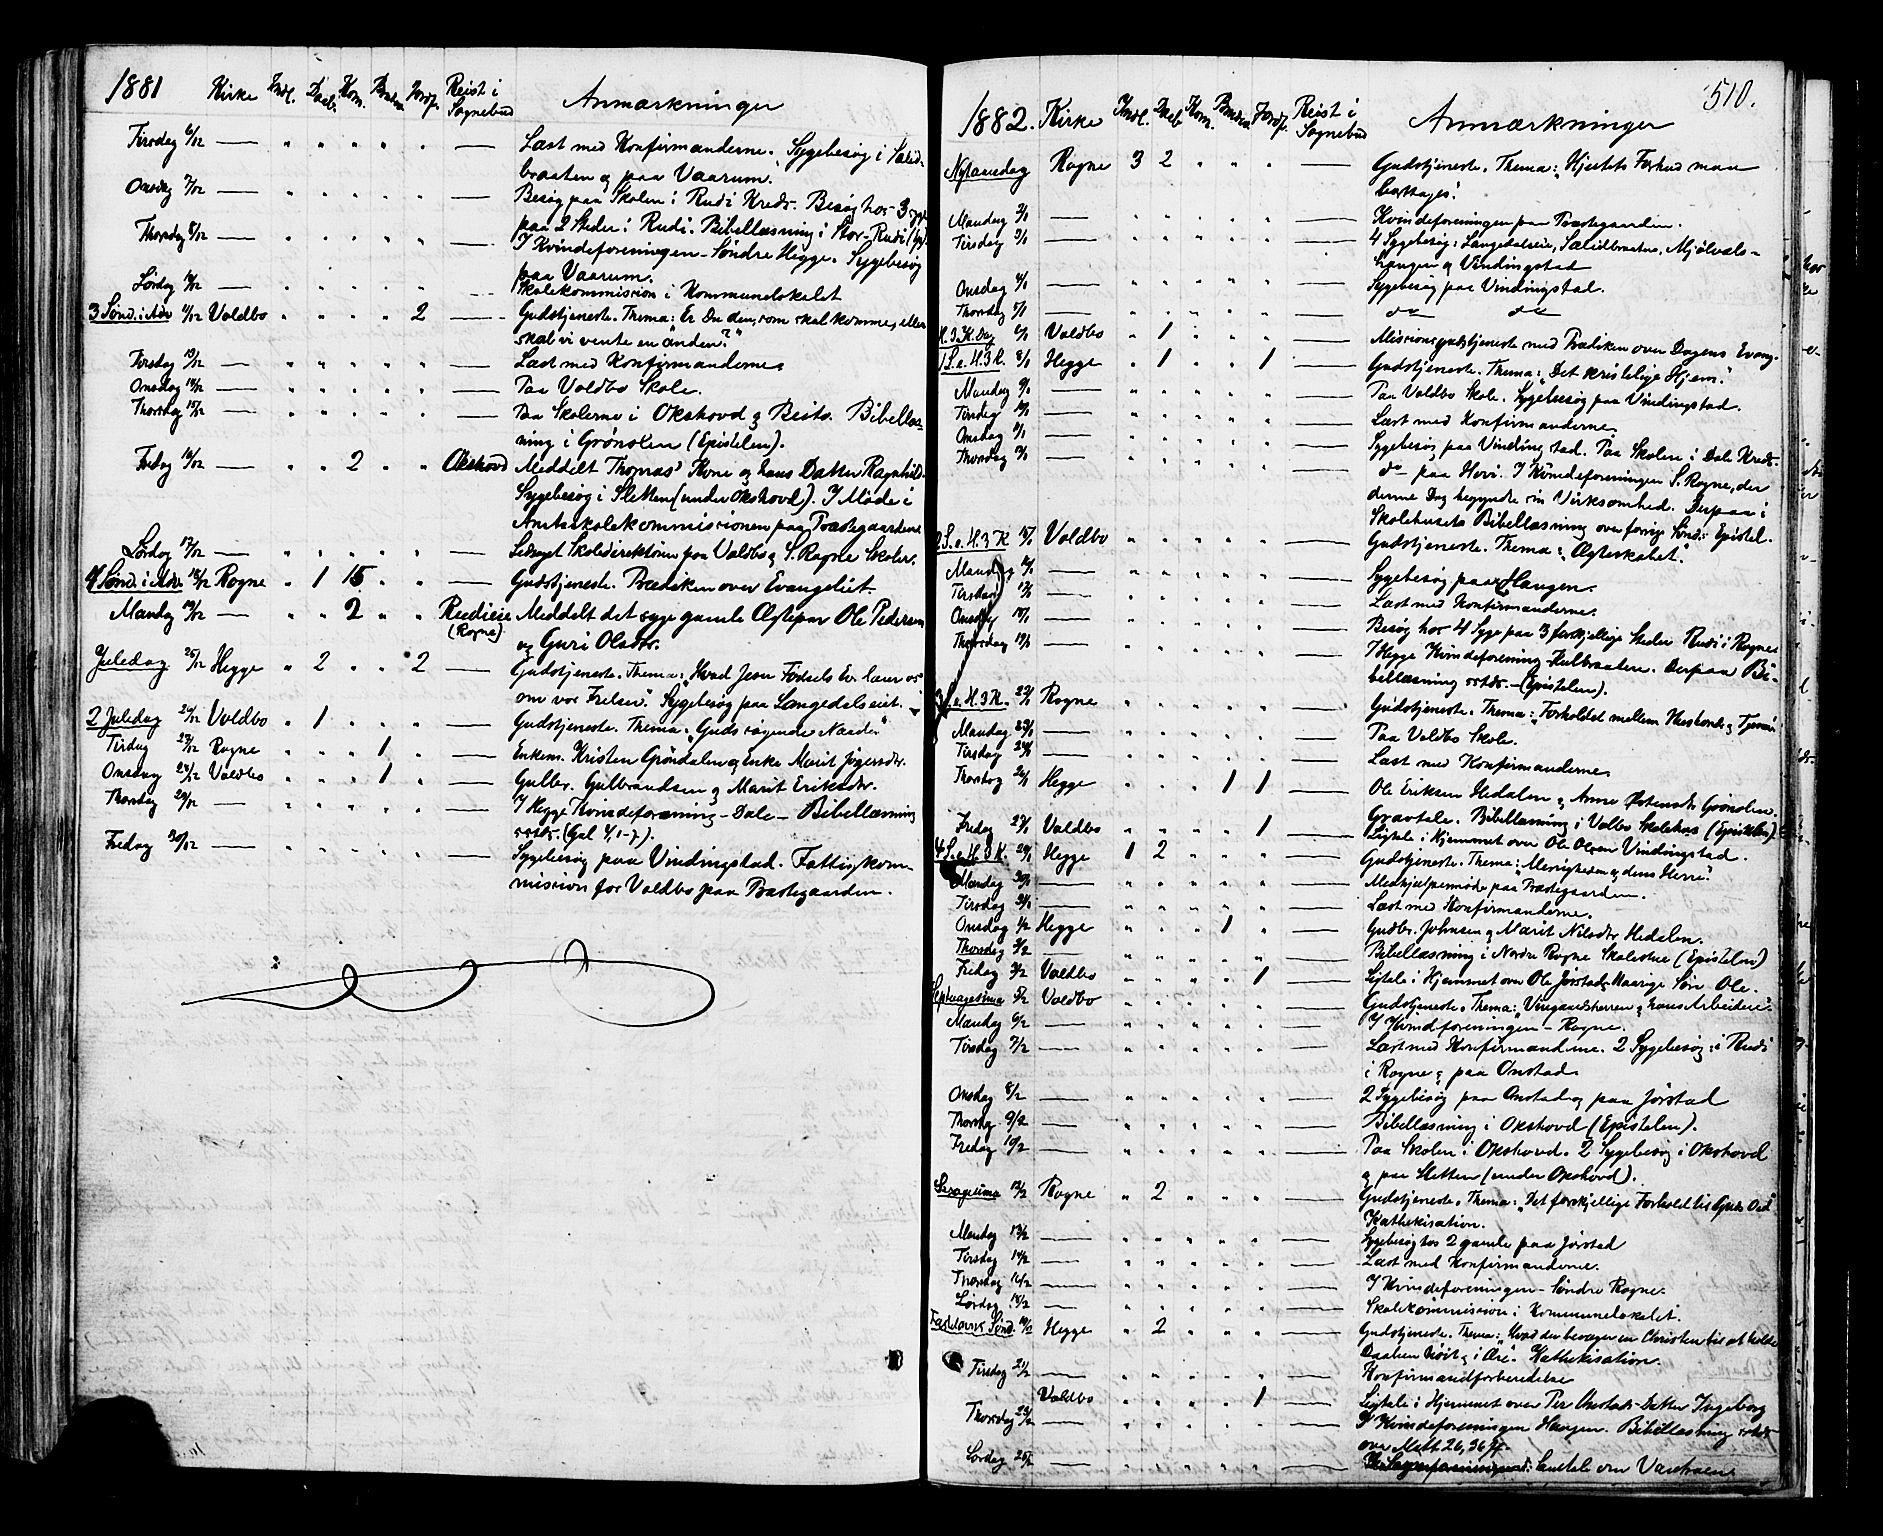 1881 Kirke Indl. Daab. Kom. Brudev. Jordf. Reist i Sognebud Anmærkninger
Tirsdag 6/12 — " " " " " — Læst med Konfirmanderne. Sygebesøg i Sælid-
braaten og paa Vaarum.
Onsdag 7/12 — " " " " " — Besøg paa Skolen i Rudi Kreds. Besøg hos 3 syge
paa 2 Steder i Rudi. Bibellæsning i Stor-Rudi
Thorsdag 8/12 — " " " " " — I Kvindeforeningen – Søndre Hegge. Sygebesøg
paa Vaarum.
Lørdag 10/12 — " " " " " — Skolekommission i Kommunelokalet
3 Sønd. i Adv 11/12 Voldbo " " " " 2 — Gudstjeneste. Thema: Er Du den, som skal komme, eller
skal vi vente en anden?"
Tirsdag 13/12 — " " " " " — Læst med Konfirmanderne.
Onsdag 14/12 — " " " " " — Paa Voldbo Skole.
Thorsdag 15/12 — " " " " " — Paa Skolerne i Okshovd og Beito. Bibellæs-
ning i Grønolen (Epistelen).
Fredag 16/12 — " " 2 " " Okshovd Meddelt Thomas' Kone og hans Datter Ragnhild.
Sygebesøg i Sletten (under Okshovd). I Møde i
Amtsskolekommissionen paa Præstegaarden.
Lørdag 17/12 — " " " " " — Ledsaget Skoledirektøren paa Voldbo og S. Rogne Skoler.
4 Sønd. i Adv. 18/12 Rogne " 1 15 " " — Gudstjeneste. Prædiken over Evangeliet.
Mandag 19/12 — " " 2 " " Rudieie (Rogne) Meddelt det syge gamle Ægtepar Ole Pedersen
og Guri Olsdtr.
Juledag 25/12 Hegge " 2 " " 2 — Gudstjeneste. Thema: "Hvad Jesu Fødsels Ev. lærer os
om vor Frelser". Sygebesøg paa Langedalseiet.
2 Juledag 26/12 Voldbo " 1 " " " — Gudstjeneste. Thema: "Guds søgende Naade".
Tirsdag 27/12 Rogne " " " 1 " — Enkem. Kristen Grøndalen og Enke Marit
Onsdag 28/12 Voldbo " " " 1 " — Gulbr. Gulbrandsen og Marit Eriksdtr.
Thorsdag 29/12 — " " " " " — I Hegge Kvindeforening – Dale – Bibellæsning
sstds. (Gal 4,1-7).
Fredag 30/12 — " " " " " — Sygebesøg paa Vindingstad. Fattigkom-
mission for Voldbo paa Præstegaarden.
510.
1882. Kirke Indl. Daab Kom. Brudev. Jordf. Reist i Sognebud Anmærkninger
Nytaarsdag Rogne 3 2 " " " — Gudstjeneste. Thema: "Hjertets Forhud maa
borttages".
Mandag 2/1 — " " " " " — Kvindeforeningen paa Præstegaarden.
Tirsdag 3/1 — " " " " " — 4 Sygebesøg: Langedalseie, Sælidbraaten, Mjølvals-
haugen og Vindingstad
Onsdag 4/1 — " " " " " — Sygebesøg paa Vindingstad.
Thorsdag 5/1 — " " " " " — do do
H. 3 K. Dag 6/1 Voldbo " 1 " " " — Missionsgudstjeneste med Prædiken over Dagens Evang.
1 S. e. H. 3 K. 8/1 Hegge " 1 " " 1 — Gudstjeneste. Thema: "Det kristelige Hjem".
Mandag 9/1 — " " " " " — Paa Voldbo Skole. Sygebesøg paa Vindingstad.
Tirsdag 10/1 — " " " " " — Læst med Konfirmanderne.
Onsdag 11/1 — " " " " " — Sygebesøg paa Vindingstad. Paa Skolen i Dale Kreds.
Thorsdag 12/1 — " " " " " — do paa Hovi. I Kvindeforeningen S. Rogne, der
denne Dag begyndte sin Virksomhed. Derpaa i
Skolehuset Bibellæsning over forrige Sønd. Epistel.
2 S. e. H. 3 K 15/1 Voldbo " " " " " — Gudstjeneste. Thema: "Ægteskabet".
Mandag 16/1 — " " " " " — Sygebesøg paa Haugen.
Tirsdag 17/1 — " " " " " — Læst med Konfirmanderne.
Onsdag 18/1 — " " " " " — Besøg hos 4 Syge paa 3 forskjellige Steder Rudi i Rogne.
Thorsdag 19/1 — " " " " " — I Hegge Kvindeforening – Kulbraaten. Derpaa Bi-
bellæsning sstds. – (Epistelen).
3 S. e. H. 3 K. 22/1 Rogne " " " " " — Gudstjeneste. Thema: "Forholdet mellem Husbond og Tjener".
Mandag 23/1 — " " " " " — Paa Voldbo Skole.
Tirsdag 24/1 — " " " " " — Læst med Konfirmanderne
Thorsdag 26/1 Hegge " " " 1 1 — Ole Eriksen Hedalen og Anne Østensdtr Grønolen.
Gravtale. Bibellæsning i Volbo Skolehus (Epistelen).
Fredag 27/1 Voldbo " " " " 1 — Ligtale i Hjemmet over Ole Olsen Vindingstad.
4 S. e. H. 3 K. 29/1 Hegge 1 2 " " " — Gudstjeneste. Thema: "Menigheden og dens Herre".
Mandag 30/1 — " " " " " — Medhjælpermøde paa Præstegaarden.
Tirsdag 31/1 — " " " " " — Læst med Konfirmanderne.
Onsdag 1/2 Hegge " " " 1 " — Gudbr. Johnsen og Marit Nilsdtr Hedalen.
Thorsdag 2/2 — " " " " " — Bibellæsning i Nordre Rogne Skolestue (Epistelen)
Fredag 3/2 Voldbo " " " " 1 — Ligtale i Hjemmet over Ole Jørstads Aarige Søn Ole.
Septuagesima 5/2 Voldbo " " " " " — Gudstjeneste. Thema: "Vingaardsherren og hans Arbeidere".
Mandag 6/2 — " " " " " — I Kvindeforeningen – Rogne.
Tirsdag 7/2 — " " " " " — Læst med Konfirmanderne. 2 Sygebesøg: i Rudi
i Rogne og paa Onstad.
Onsdag 8/2 — " " " " " — 2 Sygebesøg paa Onstad og paa Jørstad
Thorsdag 9/2 — " " " " " — Bibellæsning i Okshovd (Epistelen).
Fredag 10/2 — " " " " " — Paa Skolen i Okshovd. 2 Sygebesøg i Okshovd
og paa Sletten (under Okshovd).
Sexagesima 12/2 Rogne " 2 " " " — Gudstjeneste. Thema: "Det forskjellige Forhold til Guds Ord"
Kathekisation.
Mandag 13/2 — " " " " " — Sygebesøg hos 2 gamle paa Jørstad
Tirsdag 14/2 — " " " " " — Læst med Konfirmanderne.
Thorsdag 16/2 — " " " " " — I Kvindeforeningen – Søndre Rogne.
Lørdag 18/2 — " " " " " — Skolekommission i Kommunelokalet.
Fastelavns Sønd. 19/2 Hegge " 2 " " " — Gudstjeneste. Thema: "Hvad der bevæger en Christen til at holde
Daaben høit og i Ære". Kathekisation.
Tirsdag 21/2 — " " " " " — Konfirmandforberedelse
Voldbo " " " " 1 — Ligtale i Hjemmet over Per Onstads Datter Ingeborg
Thorsdag 23/2 — " " " " " — I Kvindeforeningen Haugen. Bibellæsning sstds
over Matt 26, 36 ff.
Lørdag 25/2 — " " " " " — Samtale om